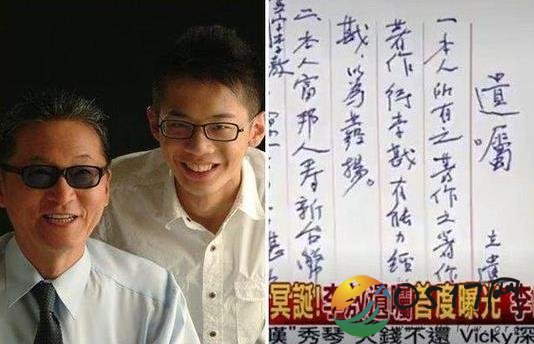 遺囑 立遺
一本人所有之著作之著作
著作 李戡有能力經
戡,以為發揚。
二本人富邦人壽新台幣
冥誕!李敖遺囑首度曝光 李
嘆"秀琴"欠錢不還 Vicky深